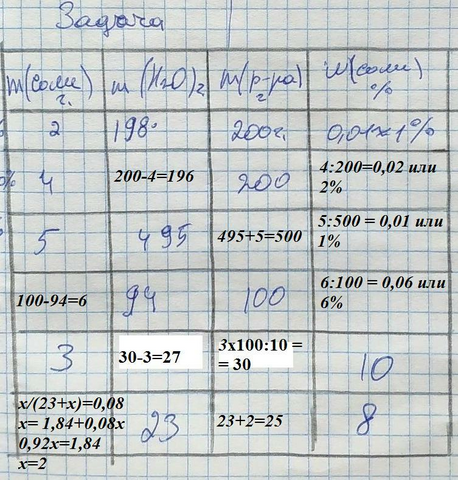 Задача
m(соли) г. m (H₂O) г. m(р-ра) г W(соли) %
2 198. 200г. 0,01 x 1%
0% 4 200-4=196 200 4:200=0,02 или 2%
5 495 495+5=500 5:500 = 0,01 или 1%
100-94=6 94 100 6:100 = 0,06 или 6%
3 30-3=27 3x100:10 = = 30 10
x/(23+x)=0,08
x= 1,84+0,08x
0,92x=1,84
x=2
23 23+2=25 8